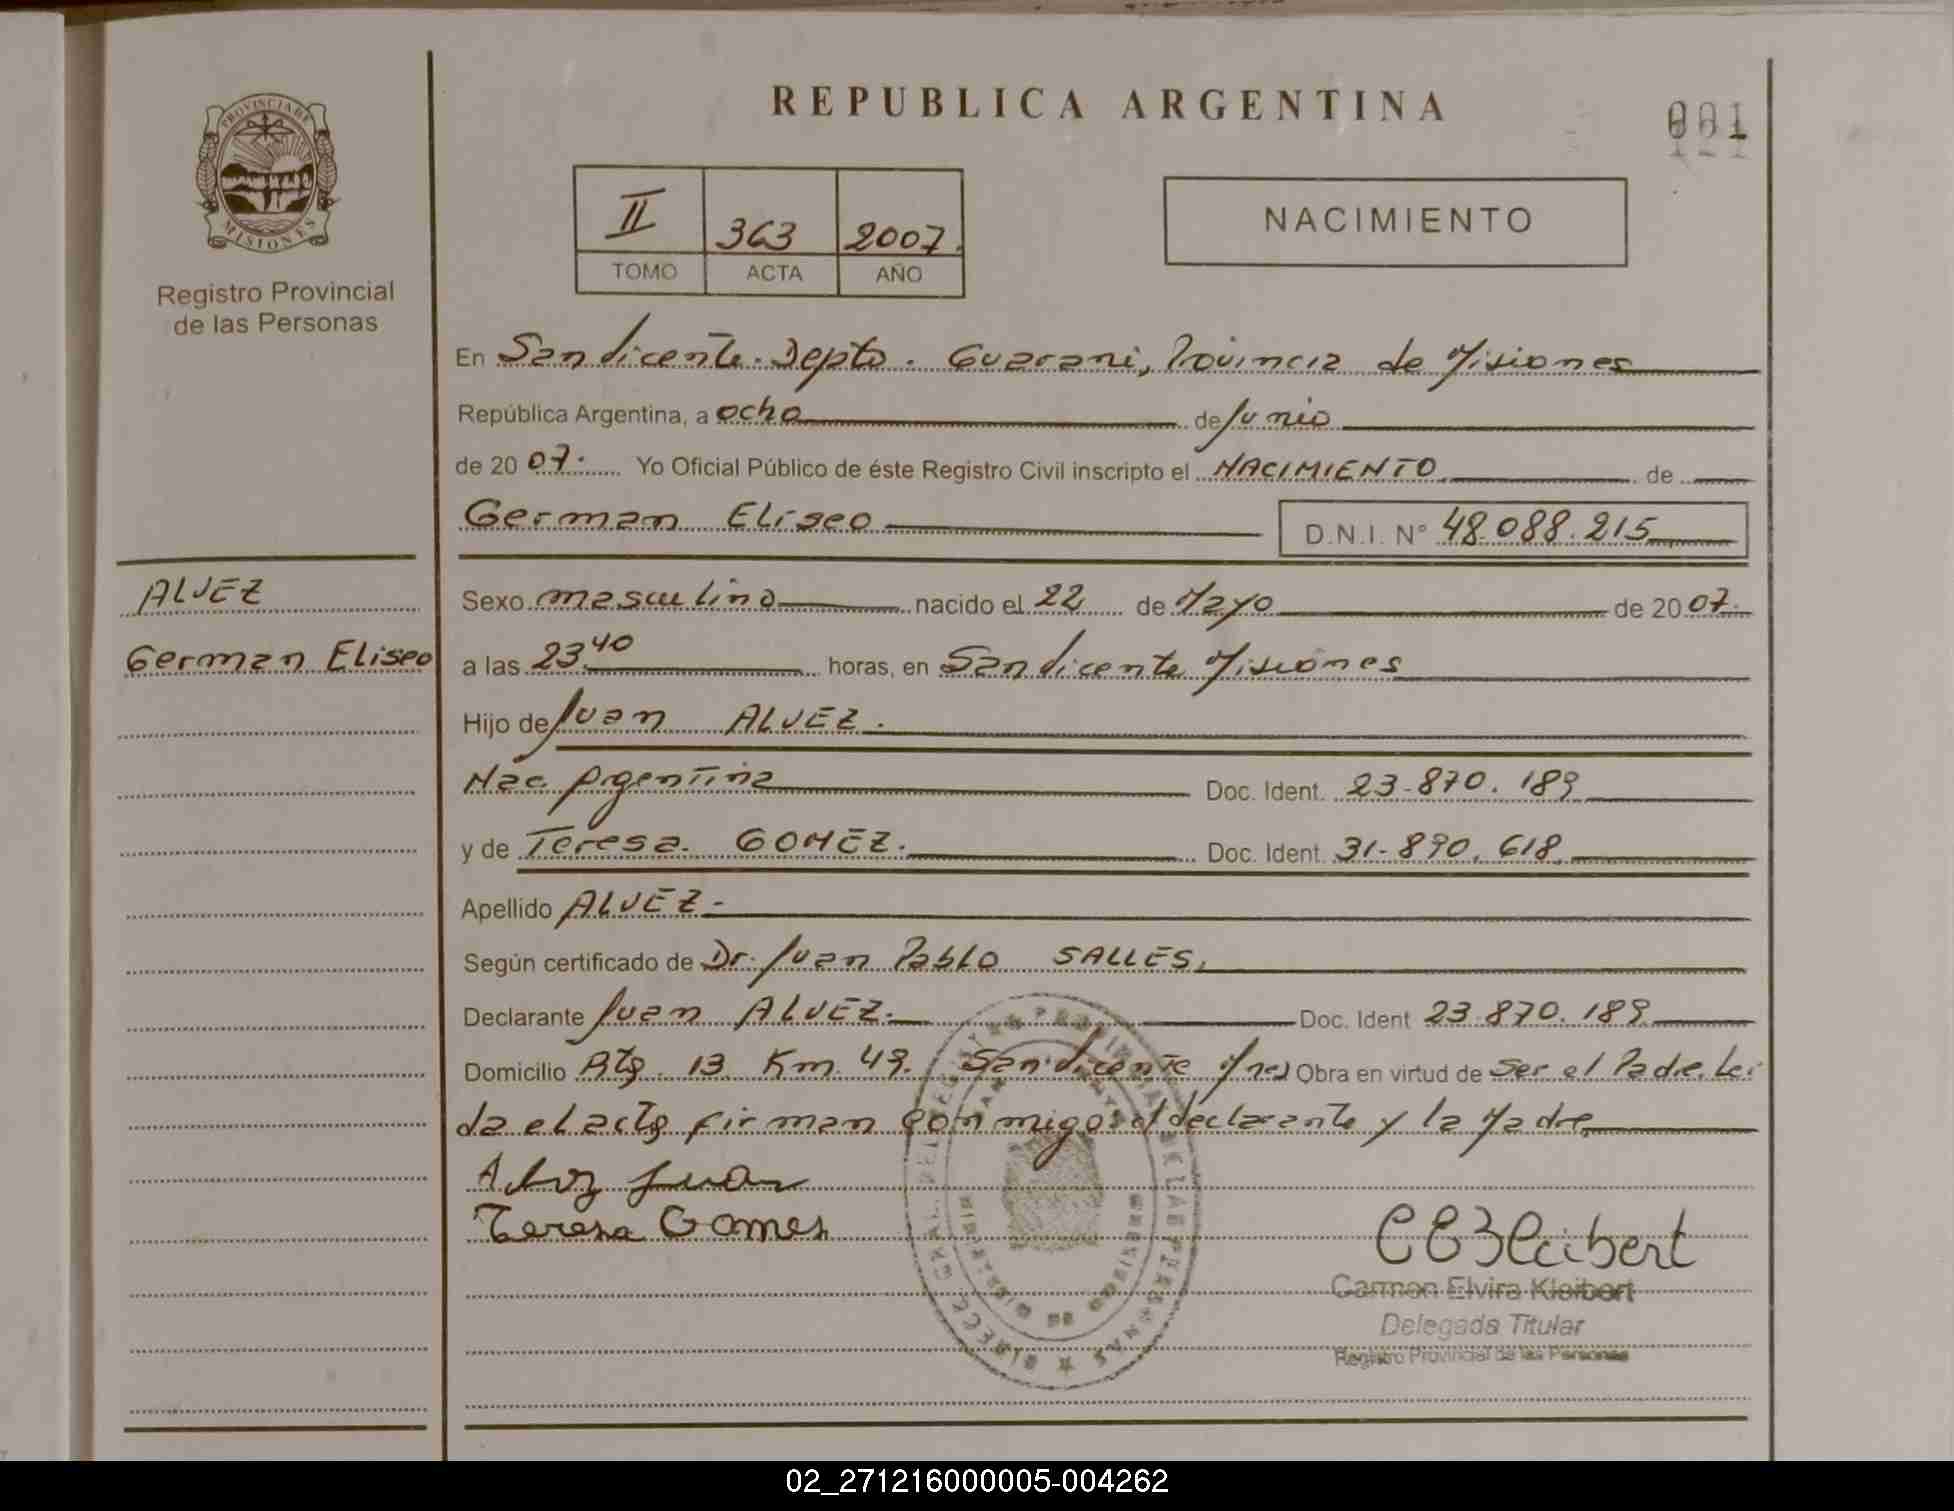 REPUBLICA ARGENTINA
001
PROVINCIA DE
MISIONES
Registro Provincial
de las Personas
II 363 2007.
TOMO ACTA AÑO
NACIMIENTO
En San Vicente. Depto. Guarani, Provincia de Misiones
República Argentina, a ocho de Junio
de 20 07. Yo Oficial Público de éste Registro Civil inscripto el NACIMIENTO de
German Eliseo D.N.I. N° 48.088.215
ALVEZ
German Eliseo
Sexo masculino nacido el 22 de Mayo de 20 07.
a las 23,40 horas, en San Vicente Misiones
Hijo de Juan ALVEZ.
Nac. Argentina Doc. Ident. 23-870.189
y de Teresa. GOMEZ. Doc. Ident. 31-890.618
Apellido ALVEZ-
Según certificado de Dr. Juan Pablo SALLES,
Declarante Juan ALVEZ. Doc. Ident 23-870.189
Domicilio Rta. 13 Km. 49. San Vicente Mnes Obra en virtud de Ser el Padre. Lei
da el acta firman conmigo el declarante y la Madre
Alvez Juan
Teresa Gomes
CEKleibert
Carmen Elvira Kleibert
Delegada Titular
Registro Provincial de las Personas
02_271216000005-004262